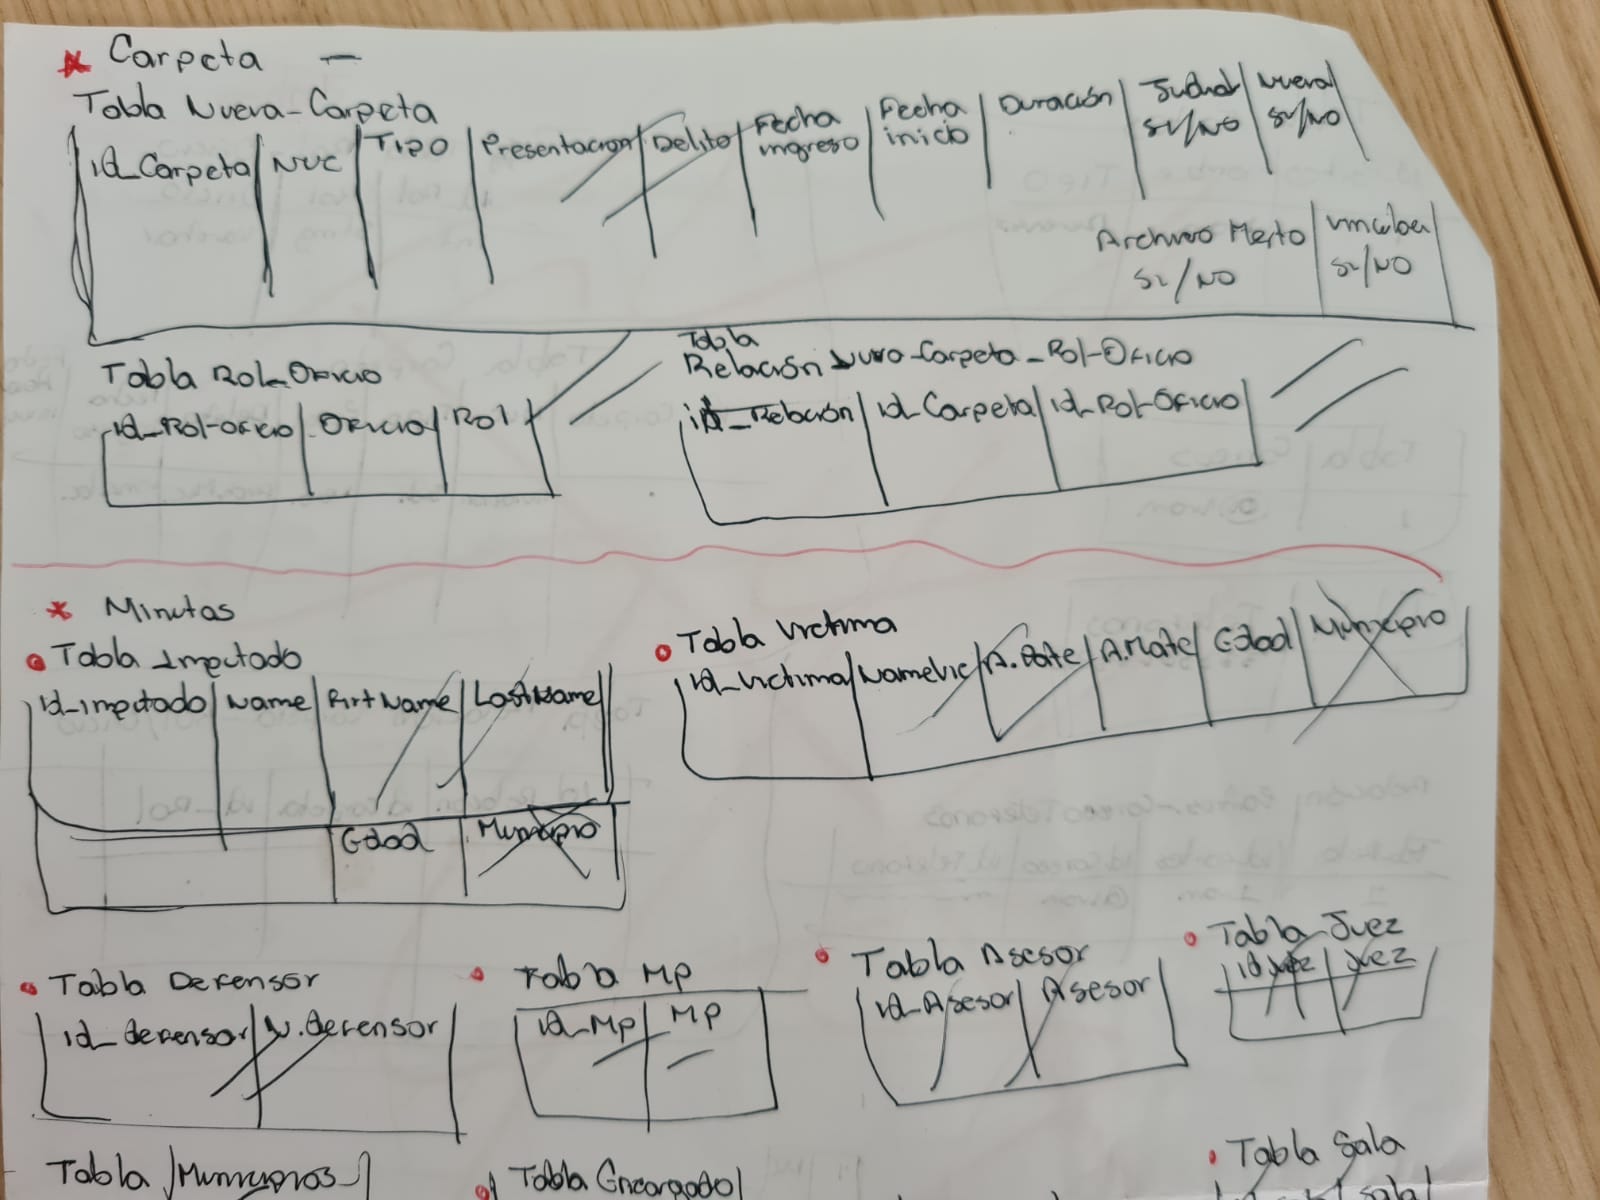 * Carpeta —
Tabla Nueva-Carpeta
id_Carpeta | NUC | TIPO | Presentacion | Delito | Fecha ingreso | Fecha inicio | Duración | Judicial SI/NO | Nueva SI/NO
Archivo Merto SI/NO | vincular SI/NO
Tabla Rol_Oficio
id_Rol-oficio | Oficio | Rol
Tabla
Relación Nueva-Carpeta_Rol-Oficio
id_Relación | id_Carpeta | id_Rol-Oficio
* Minutas
Tabla Imputado
id_imputado | Name | FirtName | LastName
Edad | Municipio
Tabla Victima
id_victima | NameVic | A.Pate | A.Mate | Edad | Municipio
Tabla Defensor
id_defensor | N.defensor
Tabla MP
id_MP | MP
Tabla Asesor
id_Asesor | Asesor
Tabla Juez
id juez | Juez
Tabla Municipios
Tabla Encargado
Tabla Sala
sala